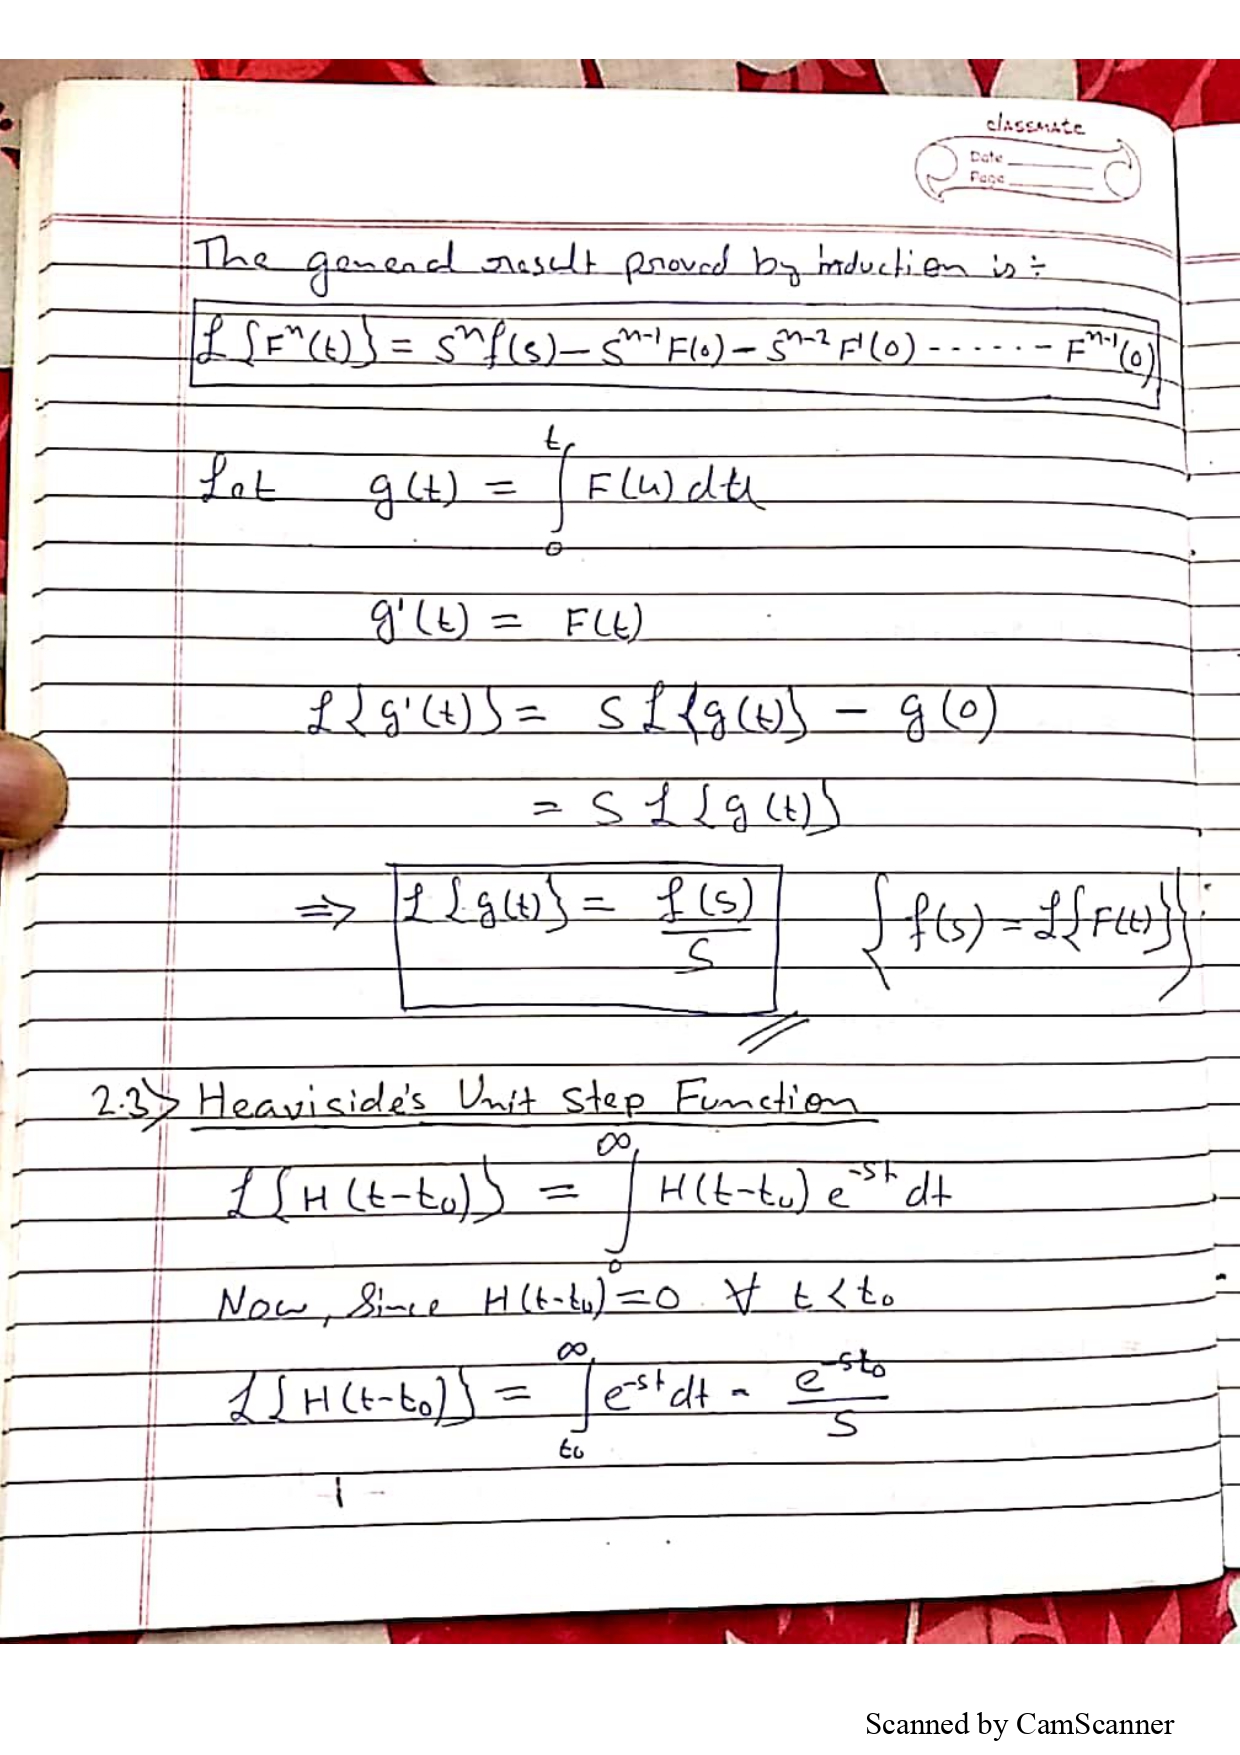 classmate
Date
Page
The general result proved by induction is ÷
ℒ{Fⁿ(t)} = Sⁿf(s) – Sⁿ⁻¹F(0) – Sⁿ⁻² F'(0) ------ – Fⁿ⁻¹(0)
Let g(t) = ∫₀ᵗ F(u) du
g'(t) = F(t)
ℒ{g'(t)} = S ℒ{g(t)} – g(0)
= S ℒ{g(t)}
⇒ ℒ{g(t)} = f(s)/S {f(s) = ℒ{F(t)}}
2.3> Heaviside's Unit Step Function
ℒ{H(t-t₀)} = ∫₀^∞ H(t-t₀) e^-st dt
Now, Since H(t-t₀) = 0 ∀ t < t₀
ℒ{H(t-t₀)} = ∫_t₀^∞ e^-st dt = e^-st₀/S
Scanned by CamScanner